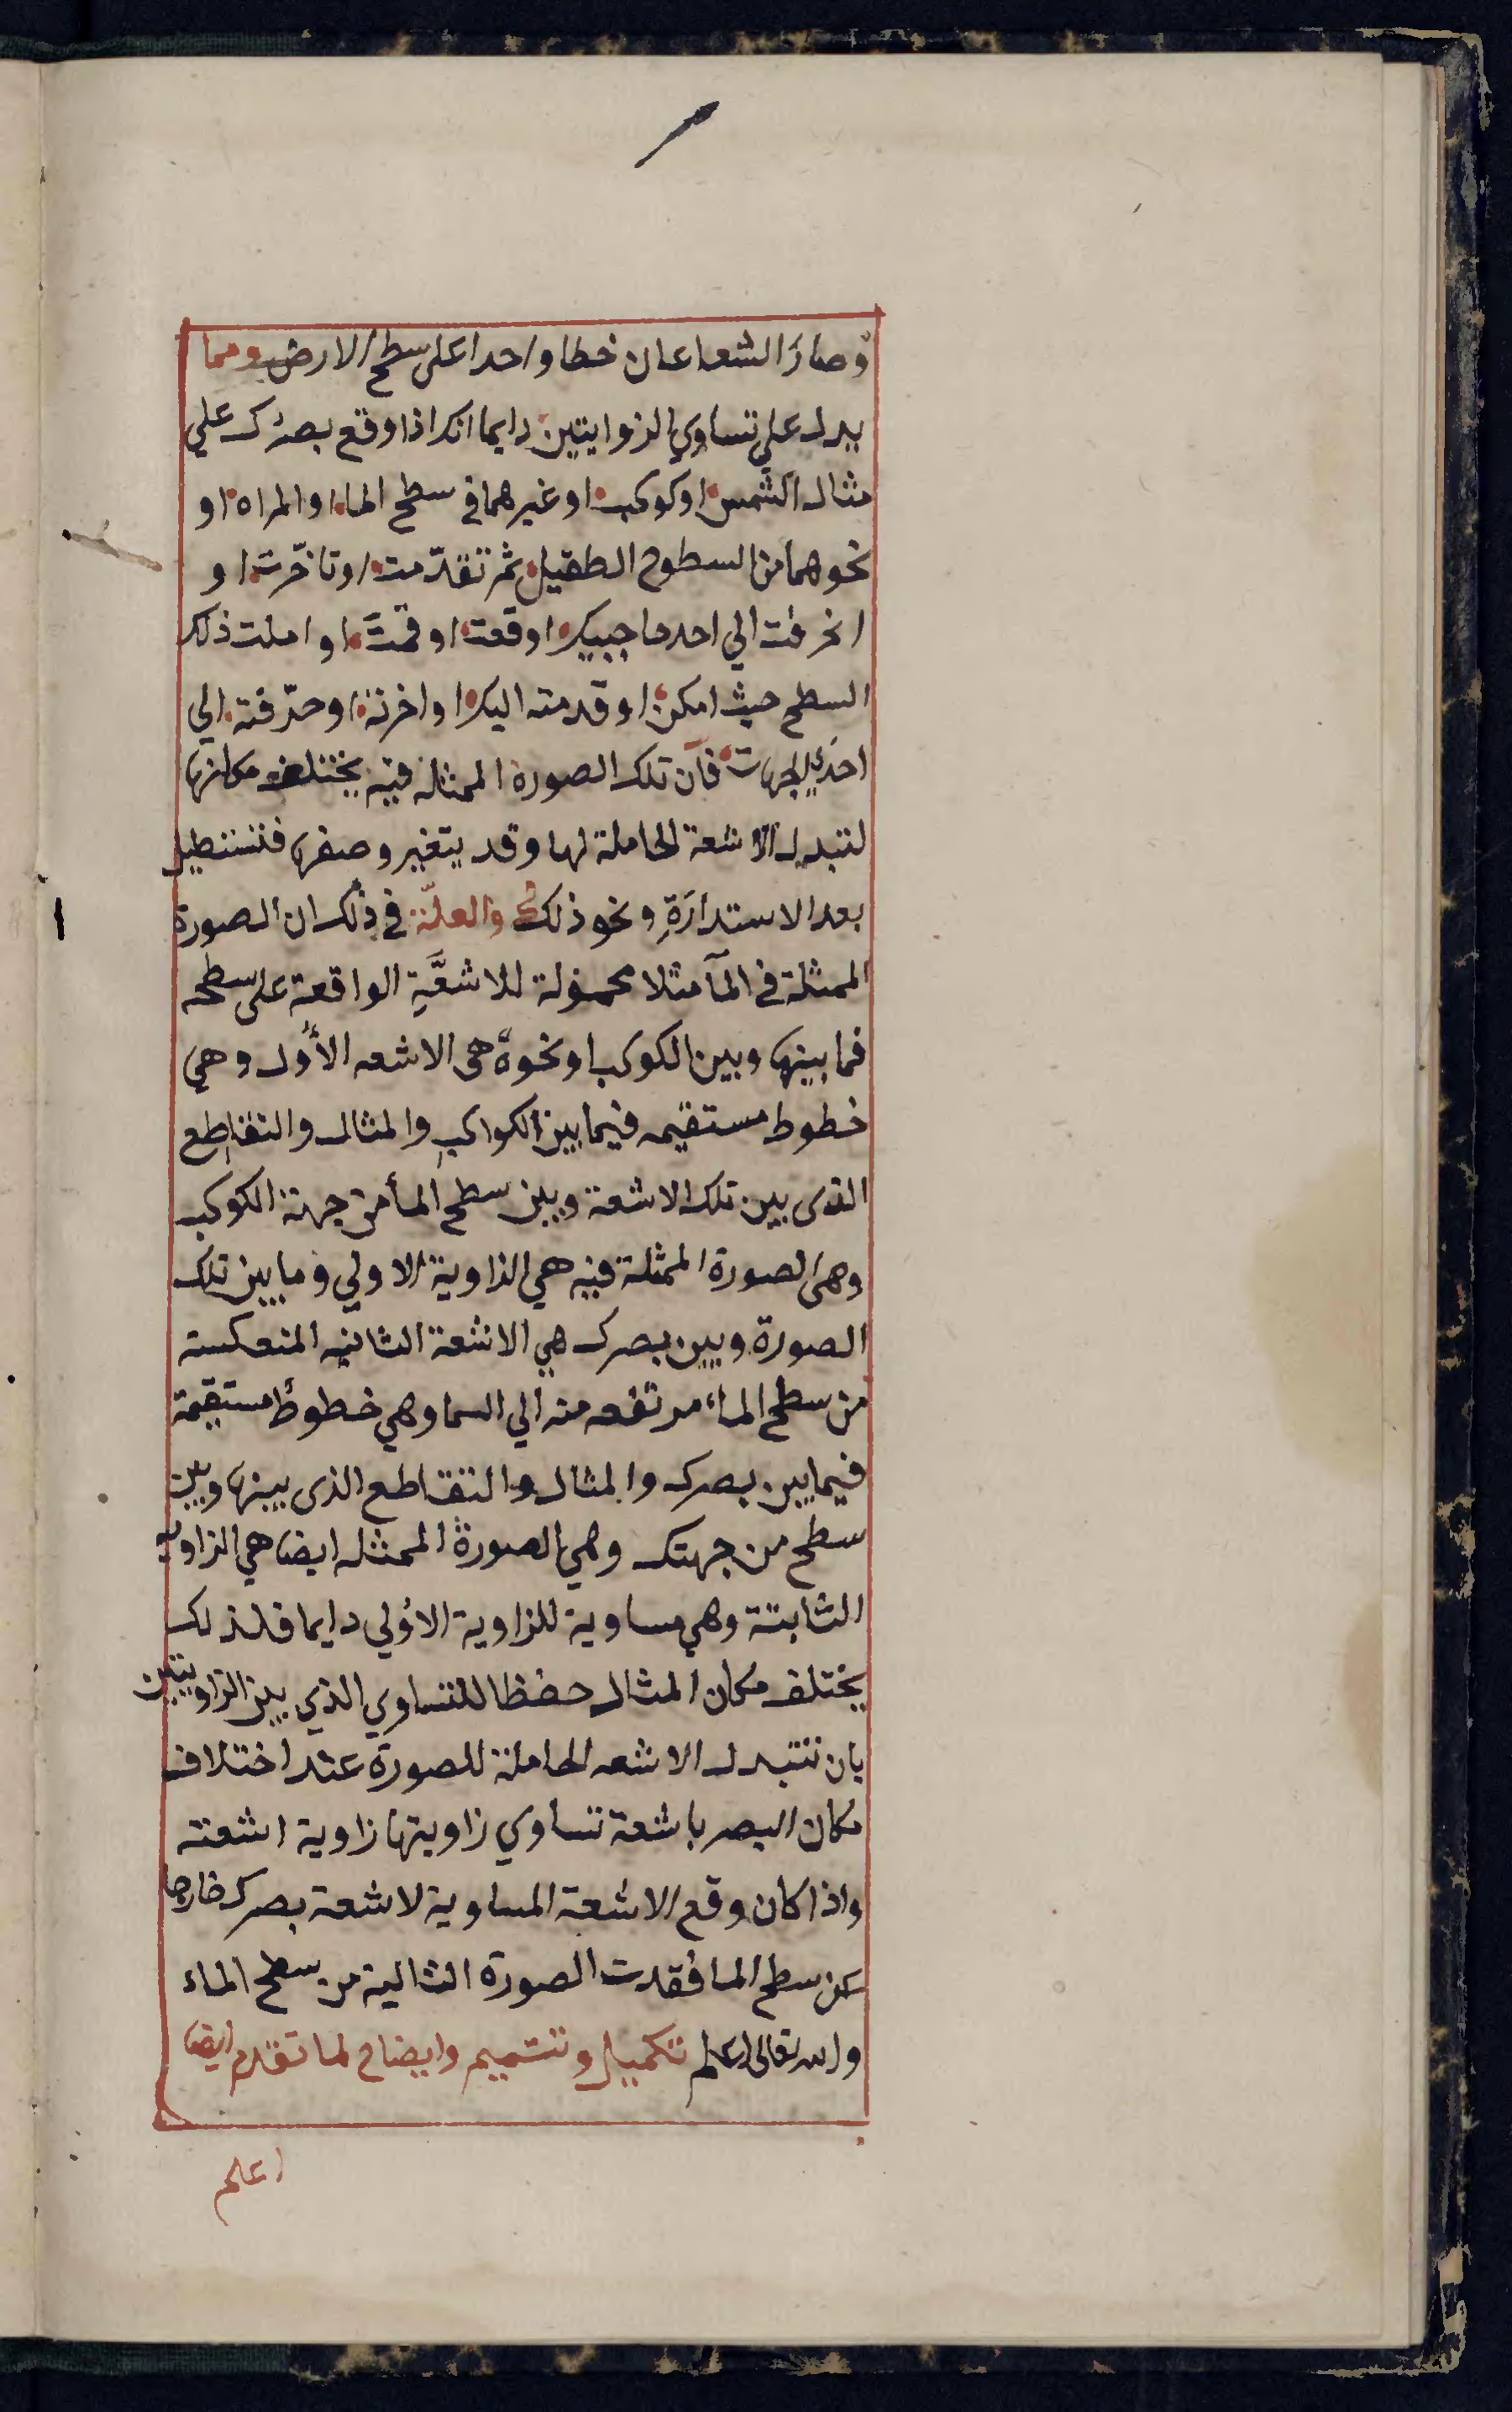 وصار الشعاعان خطا واحدا على سطح الارض ومما
يدل علي تساوي الزوايتين دايما انك اذا وقع بصرك علي
مثال الشمس او كوكب او غيرهما في سطح الماء او المراه او
نحوهما من السطوح الصقيل ثم تقدّمت او تاخّرت او
انحرفت الي احد جاجبيك او قعت او قمتَ او املت ذلك
السطح حيث امكن او قدمته اليك او اخرته او حرّفته الي
احدي الجهات فان تلك الصورة الممثله فيه يختلف مكانها
لتبدل الاشعة الحاملة لها وقد يتغير وصفها فتستطيل
بعد الاستدارَةِ ونحو ذلك والعلّة في ذلك ان الصورة
الممثلة في المآ مثلا محمولة للاشعَّةِ الواقعة على سطحه
فما بينها وبين الكوكب او نحوه هى الاشعه الأول وهي
خطوط مستقيمه فيما بين الكواكب والمثال والتقاطع
الذى بين تلك الاشعة وبين سطح المأ من جهة الكوكب
وهى الصورة الممثلة فيه هي الزاوية الاولي وما بين تلك
الصورة وبين بصرك هي الاشعة الثانيه المنعكسة
من سطح الماء مرتفعه منه الي السما وهي خطوط مستقيمة
فيما بين بصرك والمثال والتقاطع الذى بينها وبين
سطح من جهتك وهي الصورة الممثله ايضا هي الزاويه
الثابتة وهي مساوية للزاوية الاولي دايما فلذلك
يختلف مكان المثال حفظا للتساوي الذي بين الزاويتين
بان تتبدل الاشعه الحاملة للصورة عند اختلاف
مكان البصر باشعة تساوي زاويتها زاوية اشعته
واذا كان وقع الاشعة المساوية لاشعة بصرك خارجا
عن سطح الما فقدت الصورة الثالية من سطح الماء
والله تعالى اعلم تكميل وتتميم وايضاح لما تقدم ايضا
اعلم